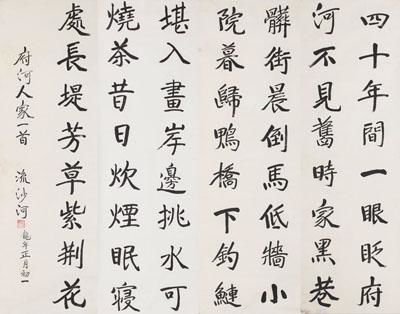 四十年間一眼眨府
河不見舊時家黑巷
髒街晨倒馬低牆小
院暮歸鴨橋下釣鰱
堪入畫岸邊挑水可
燒茶昔日炊煙眠寢
處長堤芳草紫荆花
府河人家一首
流沙河
年正月初一